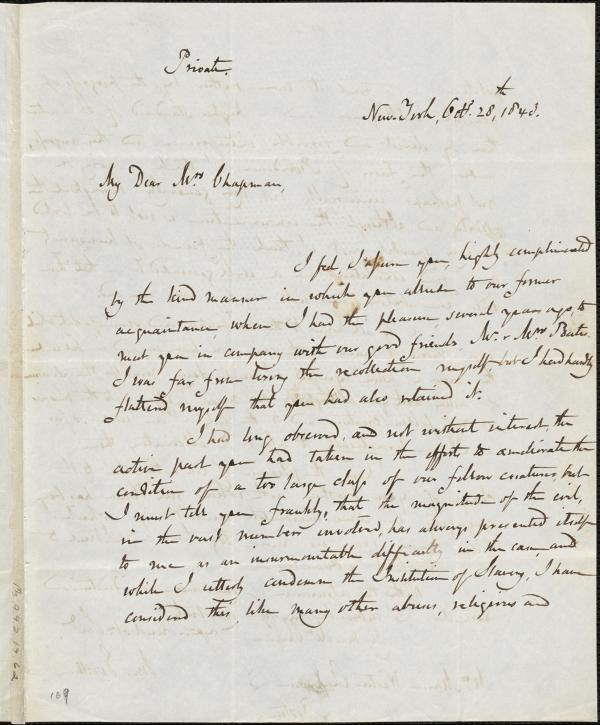 Private.
New-York, Octr. 28,th 1843.
My Dear Mrs Chapman,
I feel, I assure you, highly complimented
by the kind manner in which you allude to our former
acquaintance, when I had the pleasure, several years ago, to
meet you in company with our good friends Mr. & Mrs Bates.
I was far from losing the recollection myself, but I had hardly
flattered myself that you had also retained it.
I had long observed, and not without interest, the
active part you had taken in the efforts to ameliorate the
condition of a too large class of our fellow creatures, but
I must tell you frankly, that the magnitude of the evil,
in the vast numbers involved, has always presented itself
to me as an insurmountable difficulty in the case, and
while I utterly condemn the Institution of Slavery, I have
considered this, like many other abuses, religious and
169